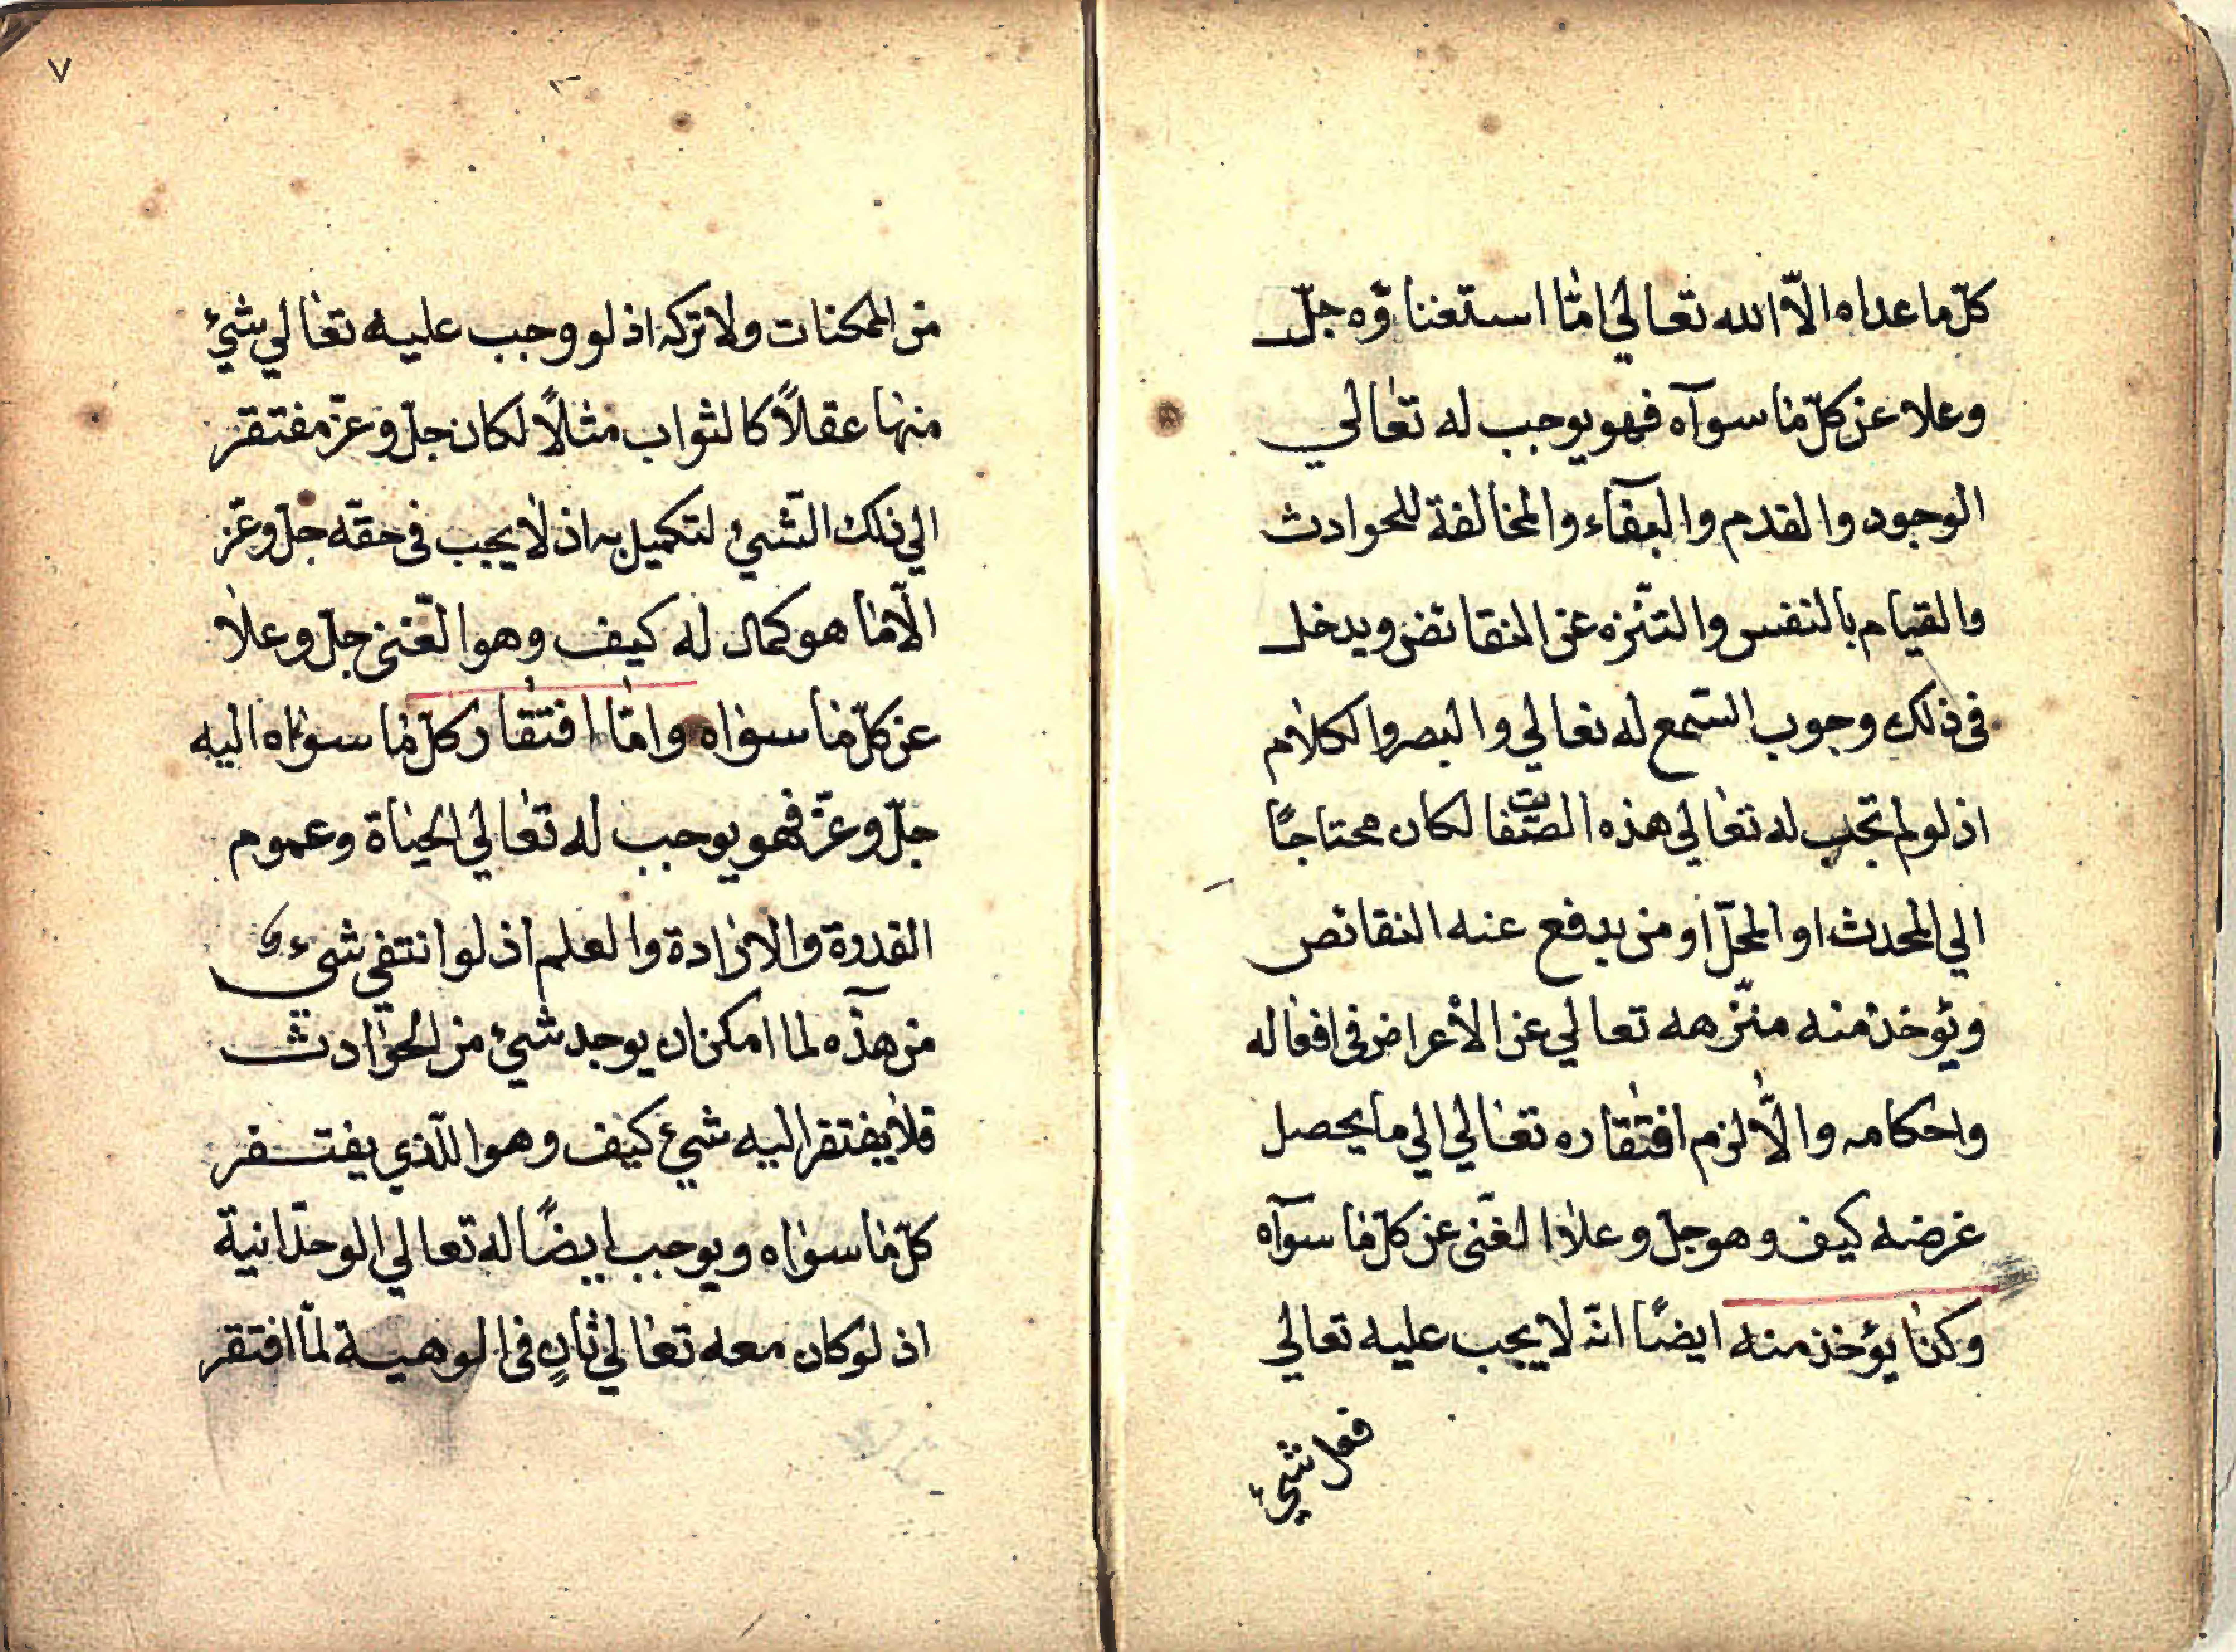 كلّ ما عداه الّا الله تعالي امّا استغناؤه جلّ
وعلا عن كلّ ما سوآه فهو يوجب له تعالي
الوجود والقدم والبقآء والمخالفة للحوادث
والقيام بالنفس والتنّزه عن النقائض ويدخل
فى ذلك وجوب السّمع له تعالي والبصر والكلام
اذ لو لم تجب له تعالي هذه الصّفات لكان محتاجًا
الي المحدث او المحلّ او من يدفع عنه النقائص
ويؤخذ منه منزّهه تعالي عن الأعراض فى افعاله
واحكامه والّا لزم افتقاره تعالي الي ما يحصل
غرضه كيف وهو جلّ وعلا الغنّى عن كلّ ما سوآه
وكذا يؤخذ منه ايضًا انّه لا يجب عليه تعالي
فعل شيئ
٧
من الممكنات ولا تركه اذ لو وجب عليه تعالي شيئ
منها عقلاً كالثواب مثلاً لكان جلّ وعزّ مفتقر
الي ذلك الشّيئ لتكميل به اذ لا يجب فى حقّه جلّ وعزّ
الّا ما هو كمال له كيف وهو الغّنى جلّ وعلا
عن كلّ ما سواه وامّا افتقار كلّ ما سواه اليه
جلّ وعزّ فهو يوجب له تعالي الحياة وعموم
القدرة والارادة والعلم اذ لو انتفي شيء
من هذه لما امكن ان يوجد شيئ من الحوادث
فلا يفتقر اليه شيئ كيف وهو الّذي يفتقر
كلّ ما سواه ويوجب ايضًا له تعالي الوحدانية
اذ لو كان معه تعالي ثانٍ فى الوهية لمّا افتقر